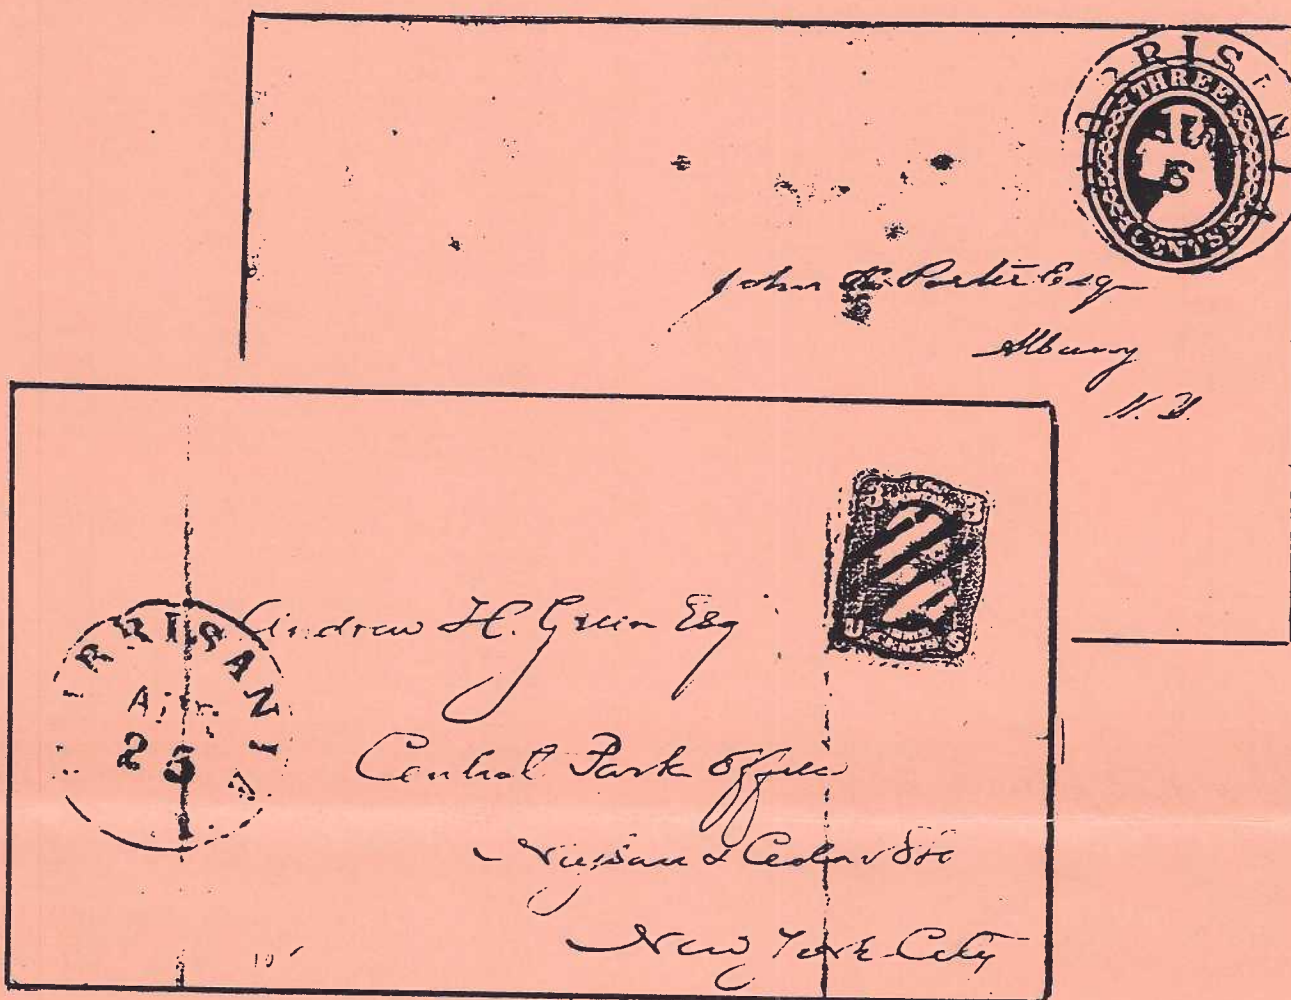 ORRISANIA
THREE
6
CENTS
John Porter Esq
Albany
N. Y.
RRISANIA
25
Andrew H. Green Esq
Central Park Office
Nassau & Cedar Sts
New York City